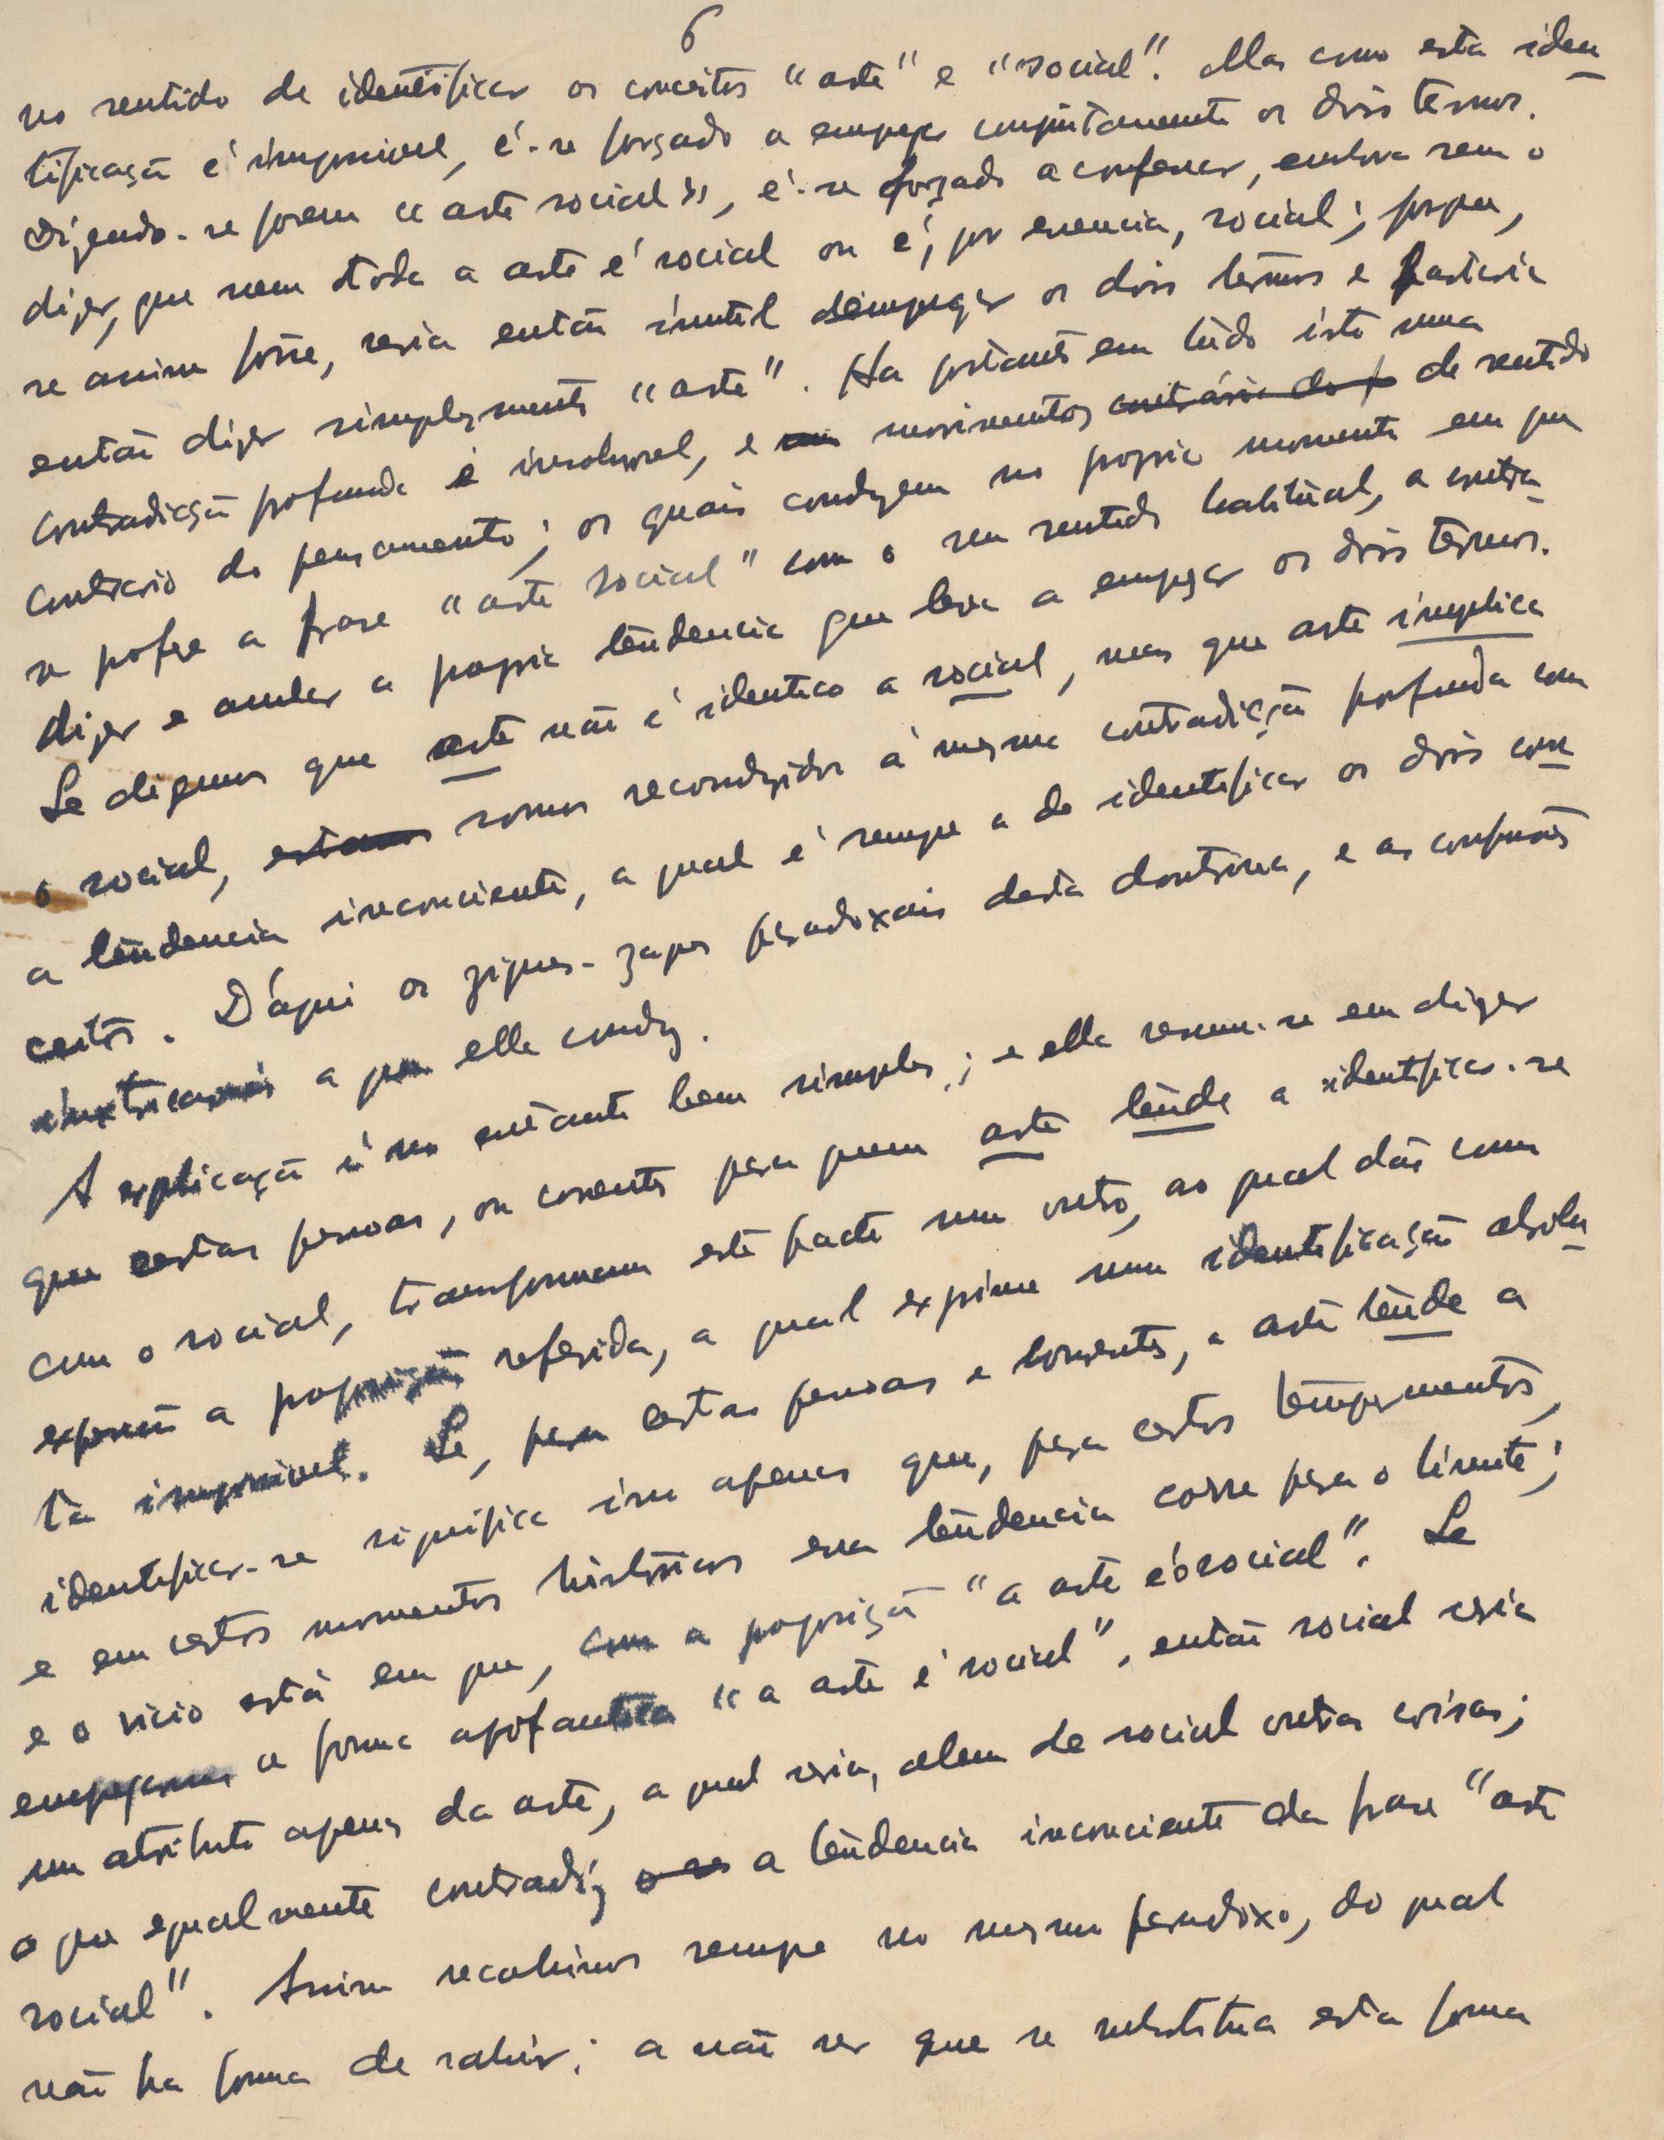 6
no sentido de identificar os conceitos "arte" e "social". Mas como esta iden
tificação é impossivel, é-se forçado a empregar conjuntamente os dois termos.
Dizendo-se porem "arte social", é-se forçado a confessar, embora sem o
dizer, que nem toda a arte é social ou é, por essencia, social; porque,
se assim fôsse, seria então inutil empregar os dois termos e bastaria
então dizer simplesmente "arte". Ha portanto em tudo isto uma
contradicção profunda e insoluvel, e movimentos contrário do p de sentido
contrario do pensamento, os quais conduzem no proprio momento em que
se profere a frase "arte social" com o seu sentido habitual, a contra
dizer e anular a propria tendencia que leva a empregar os dois termos.
Se dizemos que arte não é identico a social, mas que arte implica
o social, estamos somos reconduzidos á mesma contradicção profunda com
a tendencia inconciente, a qual é sempre a de identificar os dois con
ceitos. D'aqui os zigues-zagues paradoxais desta doutrina, e as confusões
inextricaveis a que ella conduz.
A explicação é no entanto bem simples; e ella resume-se em dizer
que certas pessoas, ou correntes para quem arte tende a identificar-se
com o social, transformam este facto num outro, ao qual dão como
expressão a proposição referida, a qual exprime uma identificação absolu
ta impossivel. Se, para certas pessoas e correntes, a arte tende a
identificar-se significa isso apenas que, para certos temperamentos,
e em certos momentos históricos essa tendencia corre para o limite;
e o vicio está em que, com a proposição "a arte é o social". Se
empregarmos a forma apofantica "a arte é social", então social seria
um atributo apenas da arte, a qual seria, alem de social outras coisas;
o que egualmente contradiz a tendencia inconciente da frase "arte
social". Assim recahimos sempre no mesmo paradoxo, do qual
não ha forma de sahir; a não ser que se substitua esta forma